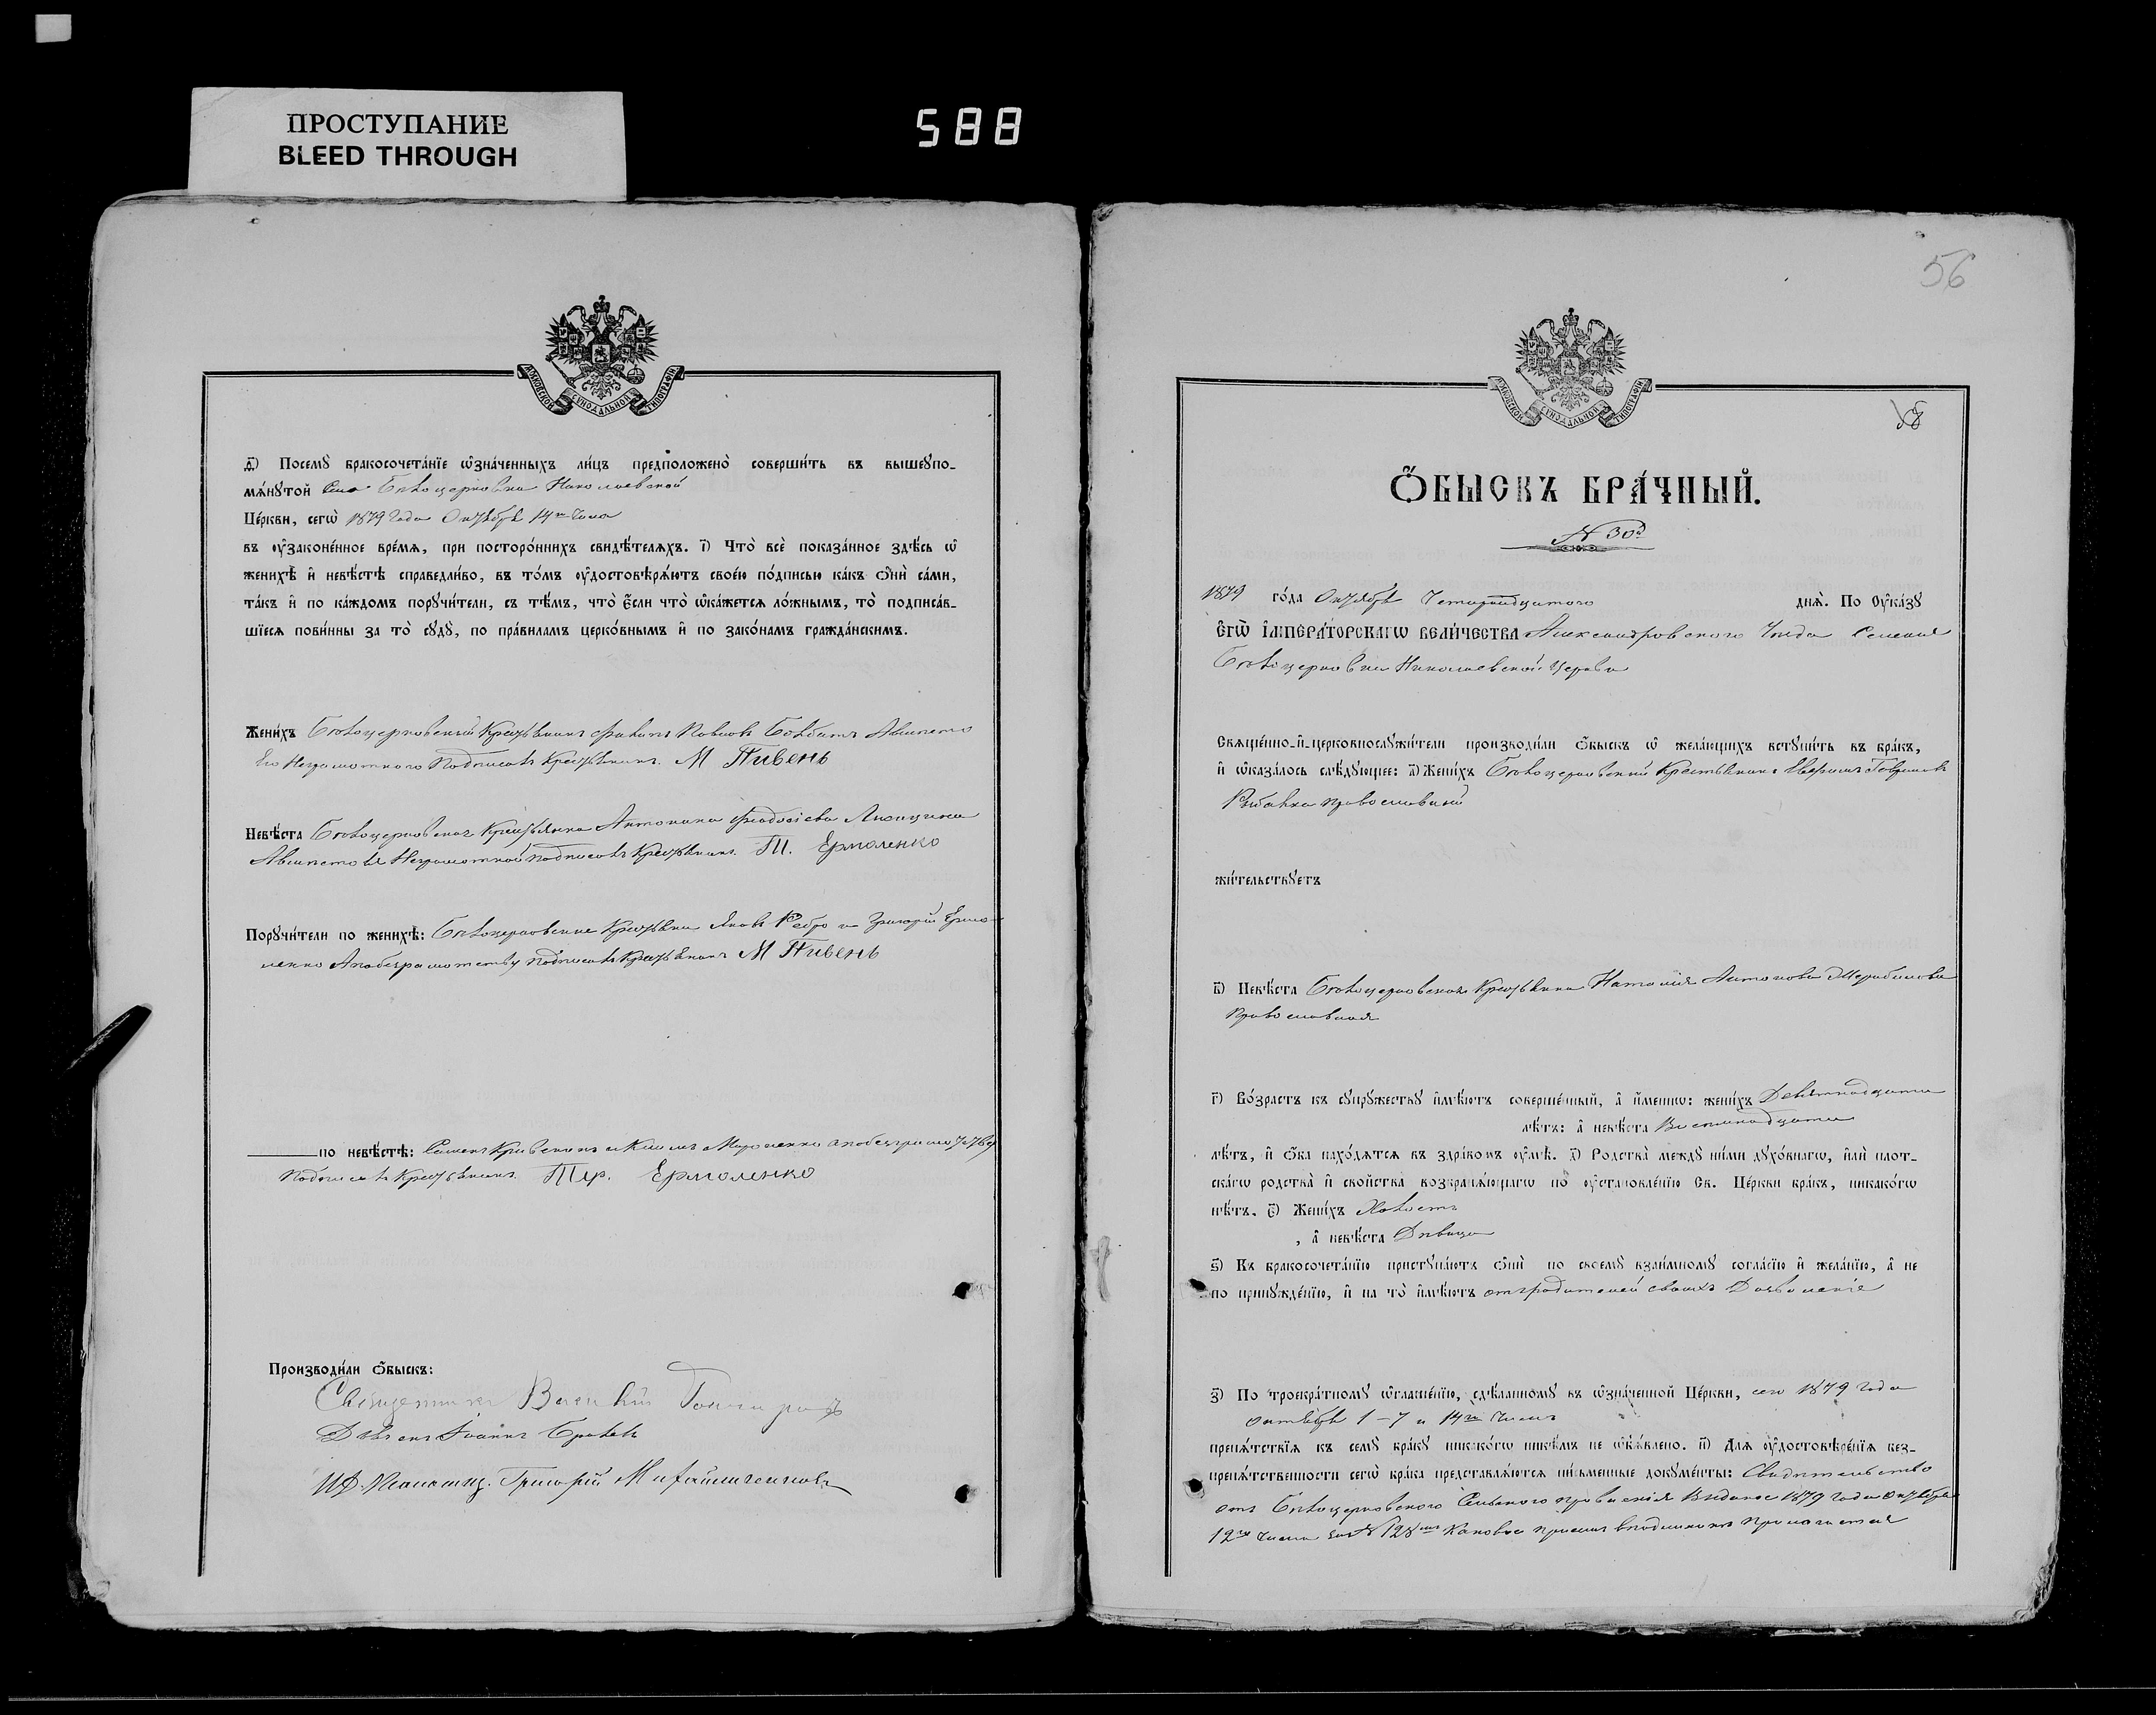 ПРОСТУПАНИЕ
BLEED THROUGH
588
МОСКОВСКОЙ СѴНОДАЛЬНОЙ ТИПОГРАФІИ
д҃) Посемꙋ̀ бракосочета́нїе ѡ҆зна́ченныхъ ли́цъ предположено̀ соверши́ть въ вышеꙋпо-
мѧ́нꙋтой Села Бѣлоцерковки Николаевской
Це́ркви, сегѡ̀ 1879 года Октября 14го числа
въ ᲂу҆законе́нное вре́мѧ, при посторо́ннихъ свидѣ́телѧхъ. і҃) Что̀ всѐ пока́занное здѣ́сь ѡ҆
женихѣ̀ и҆ невѣ́стѣ справедли́во, въ то́мъ ᲂу҆достовѣрѧ́ютъ свое́ю по́дписью ка́къ ѻ҆нѝ са́ми,
та́къ и҆ по ка́ждомъ порꙋчи́тели, съ тѣ́мъ, что̀ є҆́сли что̀ ѡ҆ка́жетсѧ ло́жнымъ, то̀ подписа́в-
шїесѧ пови́нны за то̀ сꙋдꙋ̀, по пра́виламъ церко́внымъ и҆ по зако́намъ гражда́нскимъ.
Жени́хъ Бѣлоцерковский Крестьянинъ Павловъ
Его Неграмотного Подписалъ Крестьянинъ М Пивень
Невѣ́ста Бѣлоцерковская Крестьянка Антонина
Неграмотной подписалъ Крестьянинъ. Т. Ермоленко
Порꙋчи́тели по женихѣ̀: Бѣлоцерковские Крестьяне Яковъ Ребро и Григорій Ермо-
ленко подписалъ Крестьянинъ М Пивень
по невѣ́стѣ: Семенъ
Подписалъ Крестьянинъ Ермоленко
Производи́ли ѻ҆́быскъ:
Священникъ Василій
Дьяконъ Іоаннъ
Григорій
56
МОСКОВСКОЙ СѴНОДАЛЬНОЙ ТИПОГРАФІИ
Ѻ҆́БЫСКЪ БРА́ЧНЫЙ.
№ 30й
1879 го́да Октября Четырнадцатого днѧ̀. По Оу҆ка́зꙋ
Є҆гѡ̀ И҆мпера́торскагѡ вели́чества Александровского Уезда Селения
Бѣлоцерковки Николаевской Церкви
Свѧще́нно-и҆-церковнослꙋжи́тели производи́ли ѻ҆́быскъ ѡ҆ жела́ющихъ встꙋпи́ть въ бра́къ,
и҆ ѡ҆каза́лось слѣ́дꙋющее: а҃) Жени́хъ Бѣлоцерковский Крестьянинъ Гавриловъ
Рыбалка православный
жи́тельствꙋетъ
в҃) Невѣ́ста Бѣлоцерковская Крестьянка Наталія Антонова
Православная
г҃) Во́зрастъ къ сꙋпрꙋ́жествꙋ и҆мѣ́ютъ соверше́нный, а҆ и҆́меннѡ: жени́хъ Девятнадцати
лѣ́тъ: а҆ невѣ́ста Восемнадцати
лѣ́тъ, и҆ ѻ҆́ба нахо́дѧтсѧ въ здра́вомъ ᲂу҆мѣ̀. д҃) Родства̀ междꙋ ни́ми дꙋхо́внагѡ, и҆лѝ плот-
ска́гѡ родства̀ и҆ сво́йства возбранѧ́ющагѡ по ᲂу҆становле́нїю Св. Це́ркви бра́къ, никако́гѡ
нѣ́тъ. є҃) Жени́хъ Холостъ
, а҆ невѣ́ста Дѣвица
ѕ҃) Къ бракосочета́нїю пристꙋпа́ютъ ѻ҆нѝ по своемꙋ̀ взаи́мномꙋ согла́сїю и҆ жела́нїю, а҆ не
по принꙋжде́нїю, и҆ на то̀ и҆мѣ́ютъ отъ родителей своихъ Дозволеніе
з҃) По троекра́тномꙋ ѡ҆глаше́нїю, сдѣ́ланномꙋ въ ѡ҆зна́ченной Це́ркви, сего 1879 года
октября 1 – 7 и 14го числъ
препѧ́тствїѧ къ семꙋ̀ бра́кꙋ никако́гѡ никѣ́мъ не ѡ҆б̾ѧ́влено. и҃) Длѧ ᲂу҆достовѣре́нїѧ без-
препѧ́тственности сегѡ̀ бра́ка представлѧ́ютсѧ пи́сьменные докꙋме́нты: Свидетельство
отъ Бѣлоцерковского Сельского правления Выданое 1879 года октября
12го числа за № 128 Каковое при семъ въ подлинникѣ Прилогается